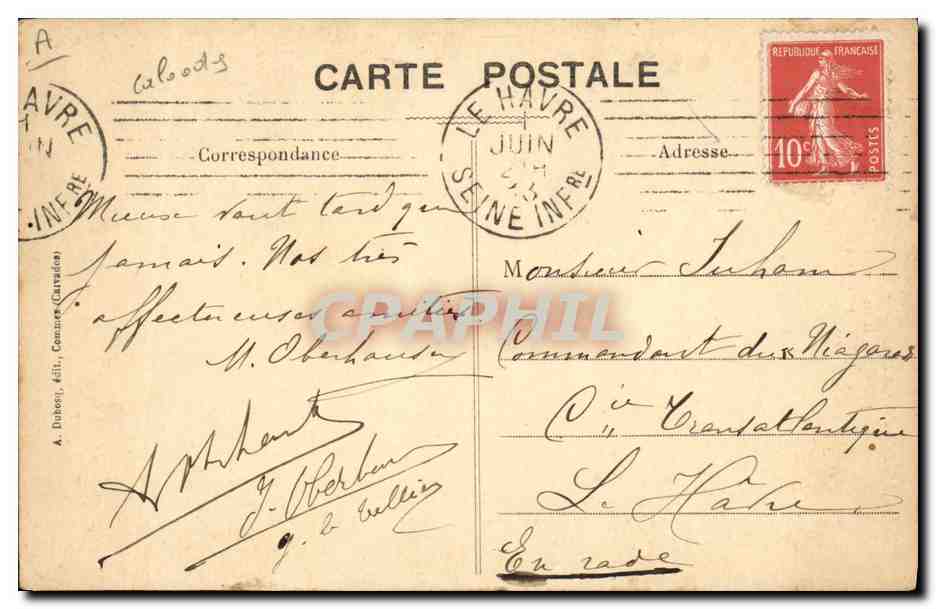 A
CARTE POSTALE
REPUBLIQUE FRANÇAISE
10c
POSTES
LE HAVRE
1
JUIN
SEINE INFRE
AVRE
INFRE
Correspondance
Adresse
Mieux vaut tard que
jamais. Nos très
affectueuses amitiés.
M. Oberhauser
J. Oberhauser
g. le Tellier
Monsieur Juham
Commandant du "Niagara"
Cie Transatlantique
Le Havre
En rade
A. Dubosq, édit., Commes (Calvados)
CPAPHIL